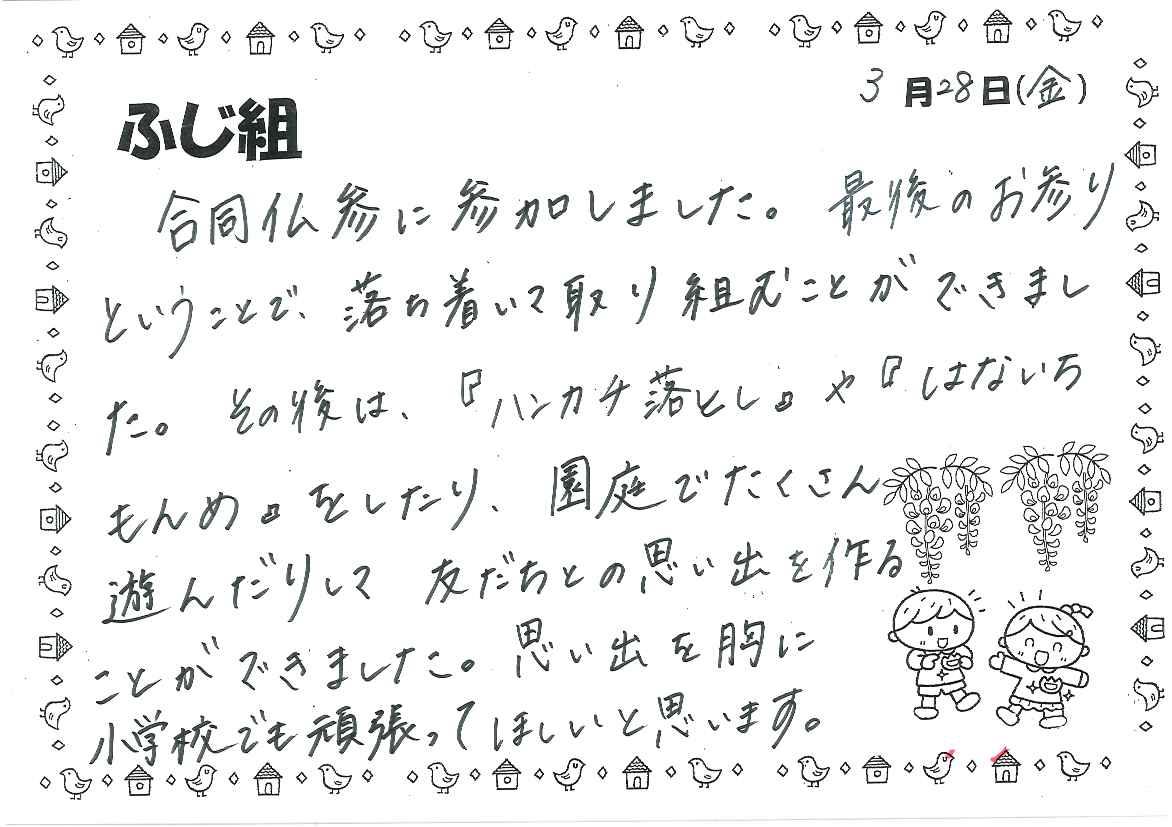 3月28日(金)
ふじ組
合同仏参に参加しました。最後のお参り
ということで、落ち着いて取り組むことができまし
た。その後は、『ハンカチ落とし』や『はないち
もんめ』をしたり、園庭でたくさん
遊んだりして 友だちとの思い出を作る
ことができました。思い出を胸に
小学校でも頑張ってほしいと思います。